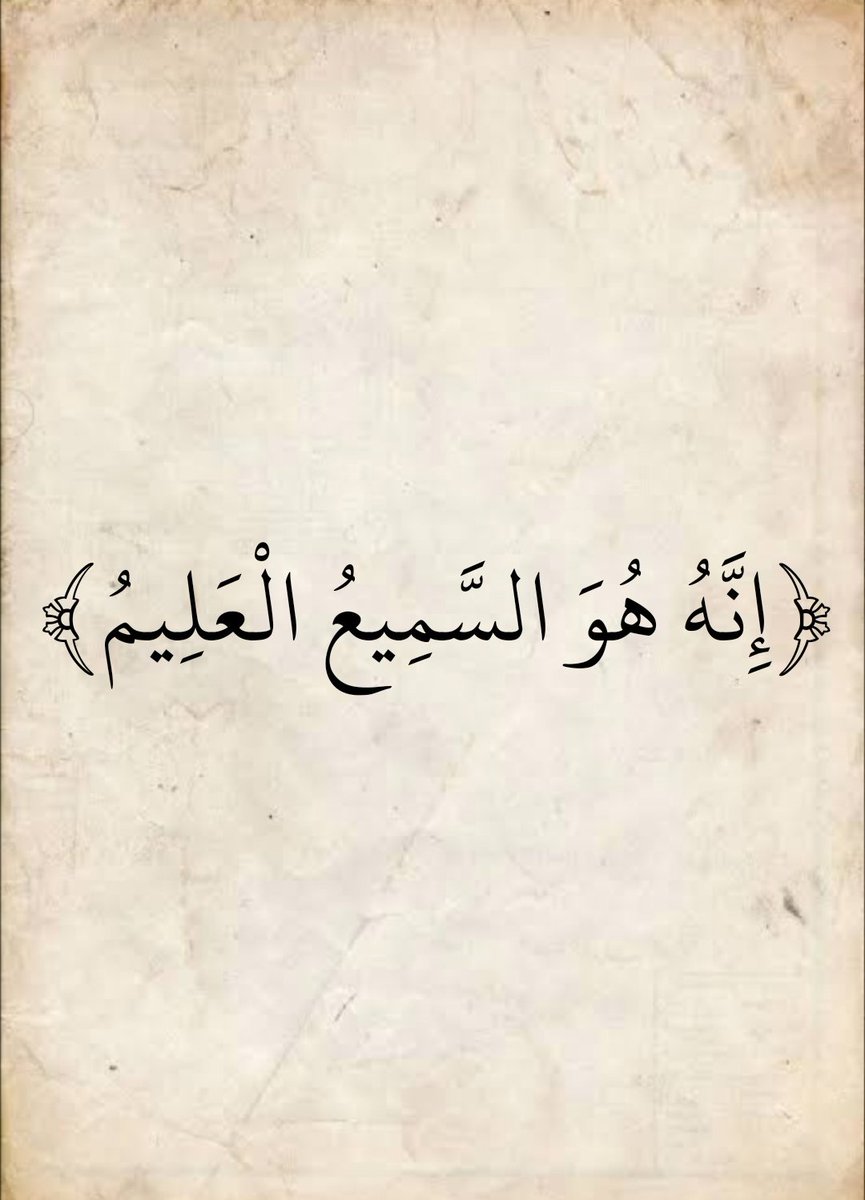 ﴿إِنَّهُ هُوَ السَّمِيعُ الْعَلِيمُ﴾